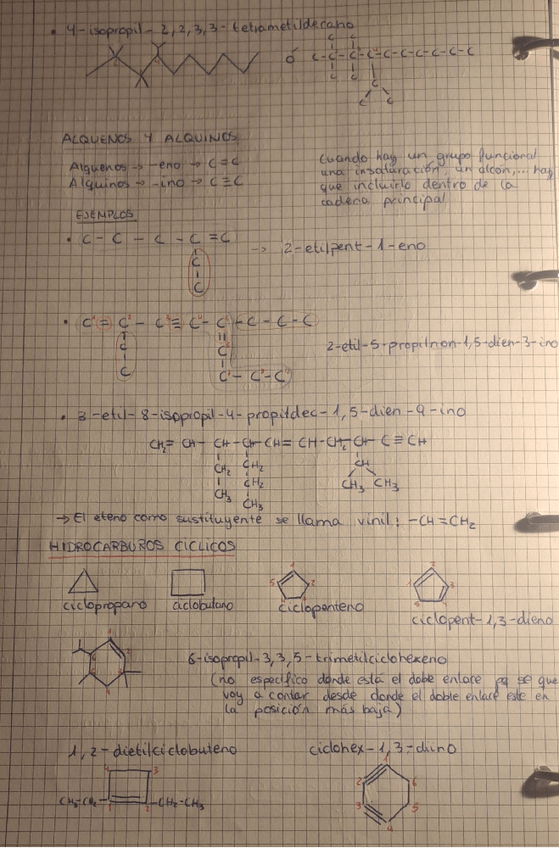 • 4-isopropil-2,2,3,3-tetrametildecano
ó C-C-C-C-C-C-C-C-C-C
ALQUENOS Y ALQUINOS
Alquenos → -eno → C=C
Alquinos → -ino → C≡C
Cuando hay un grupo funcional
una insaturación, un alcon,... hay
que incluirlo dentro de la
cadena principal
EJEMPLOS
• C-C-C-C=C
C
C
→ 2-etilpent-1-eno
• C=C-C≡C-C-C-C-C
C
C
C
C-C-C
2-etil-5-propilnon-1,5-dien-3-ino
• 3-etil-8-isopropil-4-propildec-1,5-dien-9-ino
CH₂=CH-CH-CH-CH=CH-CH₂-CH-C≡CH
CH₂ CH₂ CH
CH₃ CH₂ CH₃ CH₃
CH₃
→ El eteno como sustituyente se llama vinil: -CH=CH₂
HIDROCARBUROS CÍCLICOS
ciclopropano ciclobutano ciclopenteno ciclopent-1,3-dieno
6-isopropil-3,3,5-trimetilciclohexeno
(no especifico donde está el doble enlace pq se que
voy a contar desde donde el doble enlace esté en
la posición más baja)
1,2-dietilciclobuteno
CH₃-CH₂- -CH₂-CH₃
ciclohex-1,3-diino